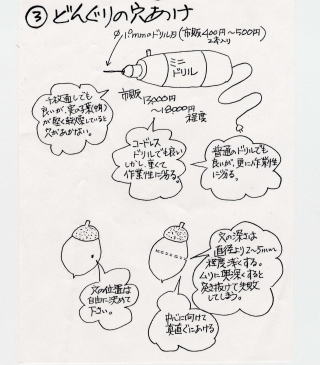 ③ どんぐりの穴あけ
φ1.0mmのドリル刃(市販400円〜500円)
2本入り
ミニ
ドリル
市販
13000円
〜18000円
程度
千枚通しでも
良いが、実の
が堅く乾燥していると
穴があかない。
コードレス
ドリルでも良い
しかし、重くて
作業性に劣る。
普通のドリルでも
良いが、更に作業性
に劣る。
穴の位置は
自由に決めて
下さい。
穴の深さは
直径より2〜5mm
程度深くする。
ムリに奥深くすると
突き抜けて失敗
してしまう。
中心に向けて
真直ぐにあける